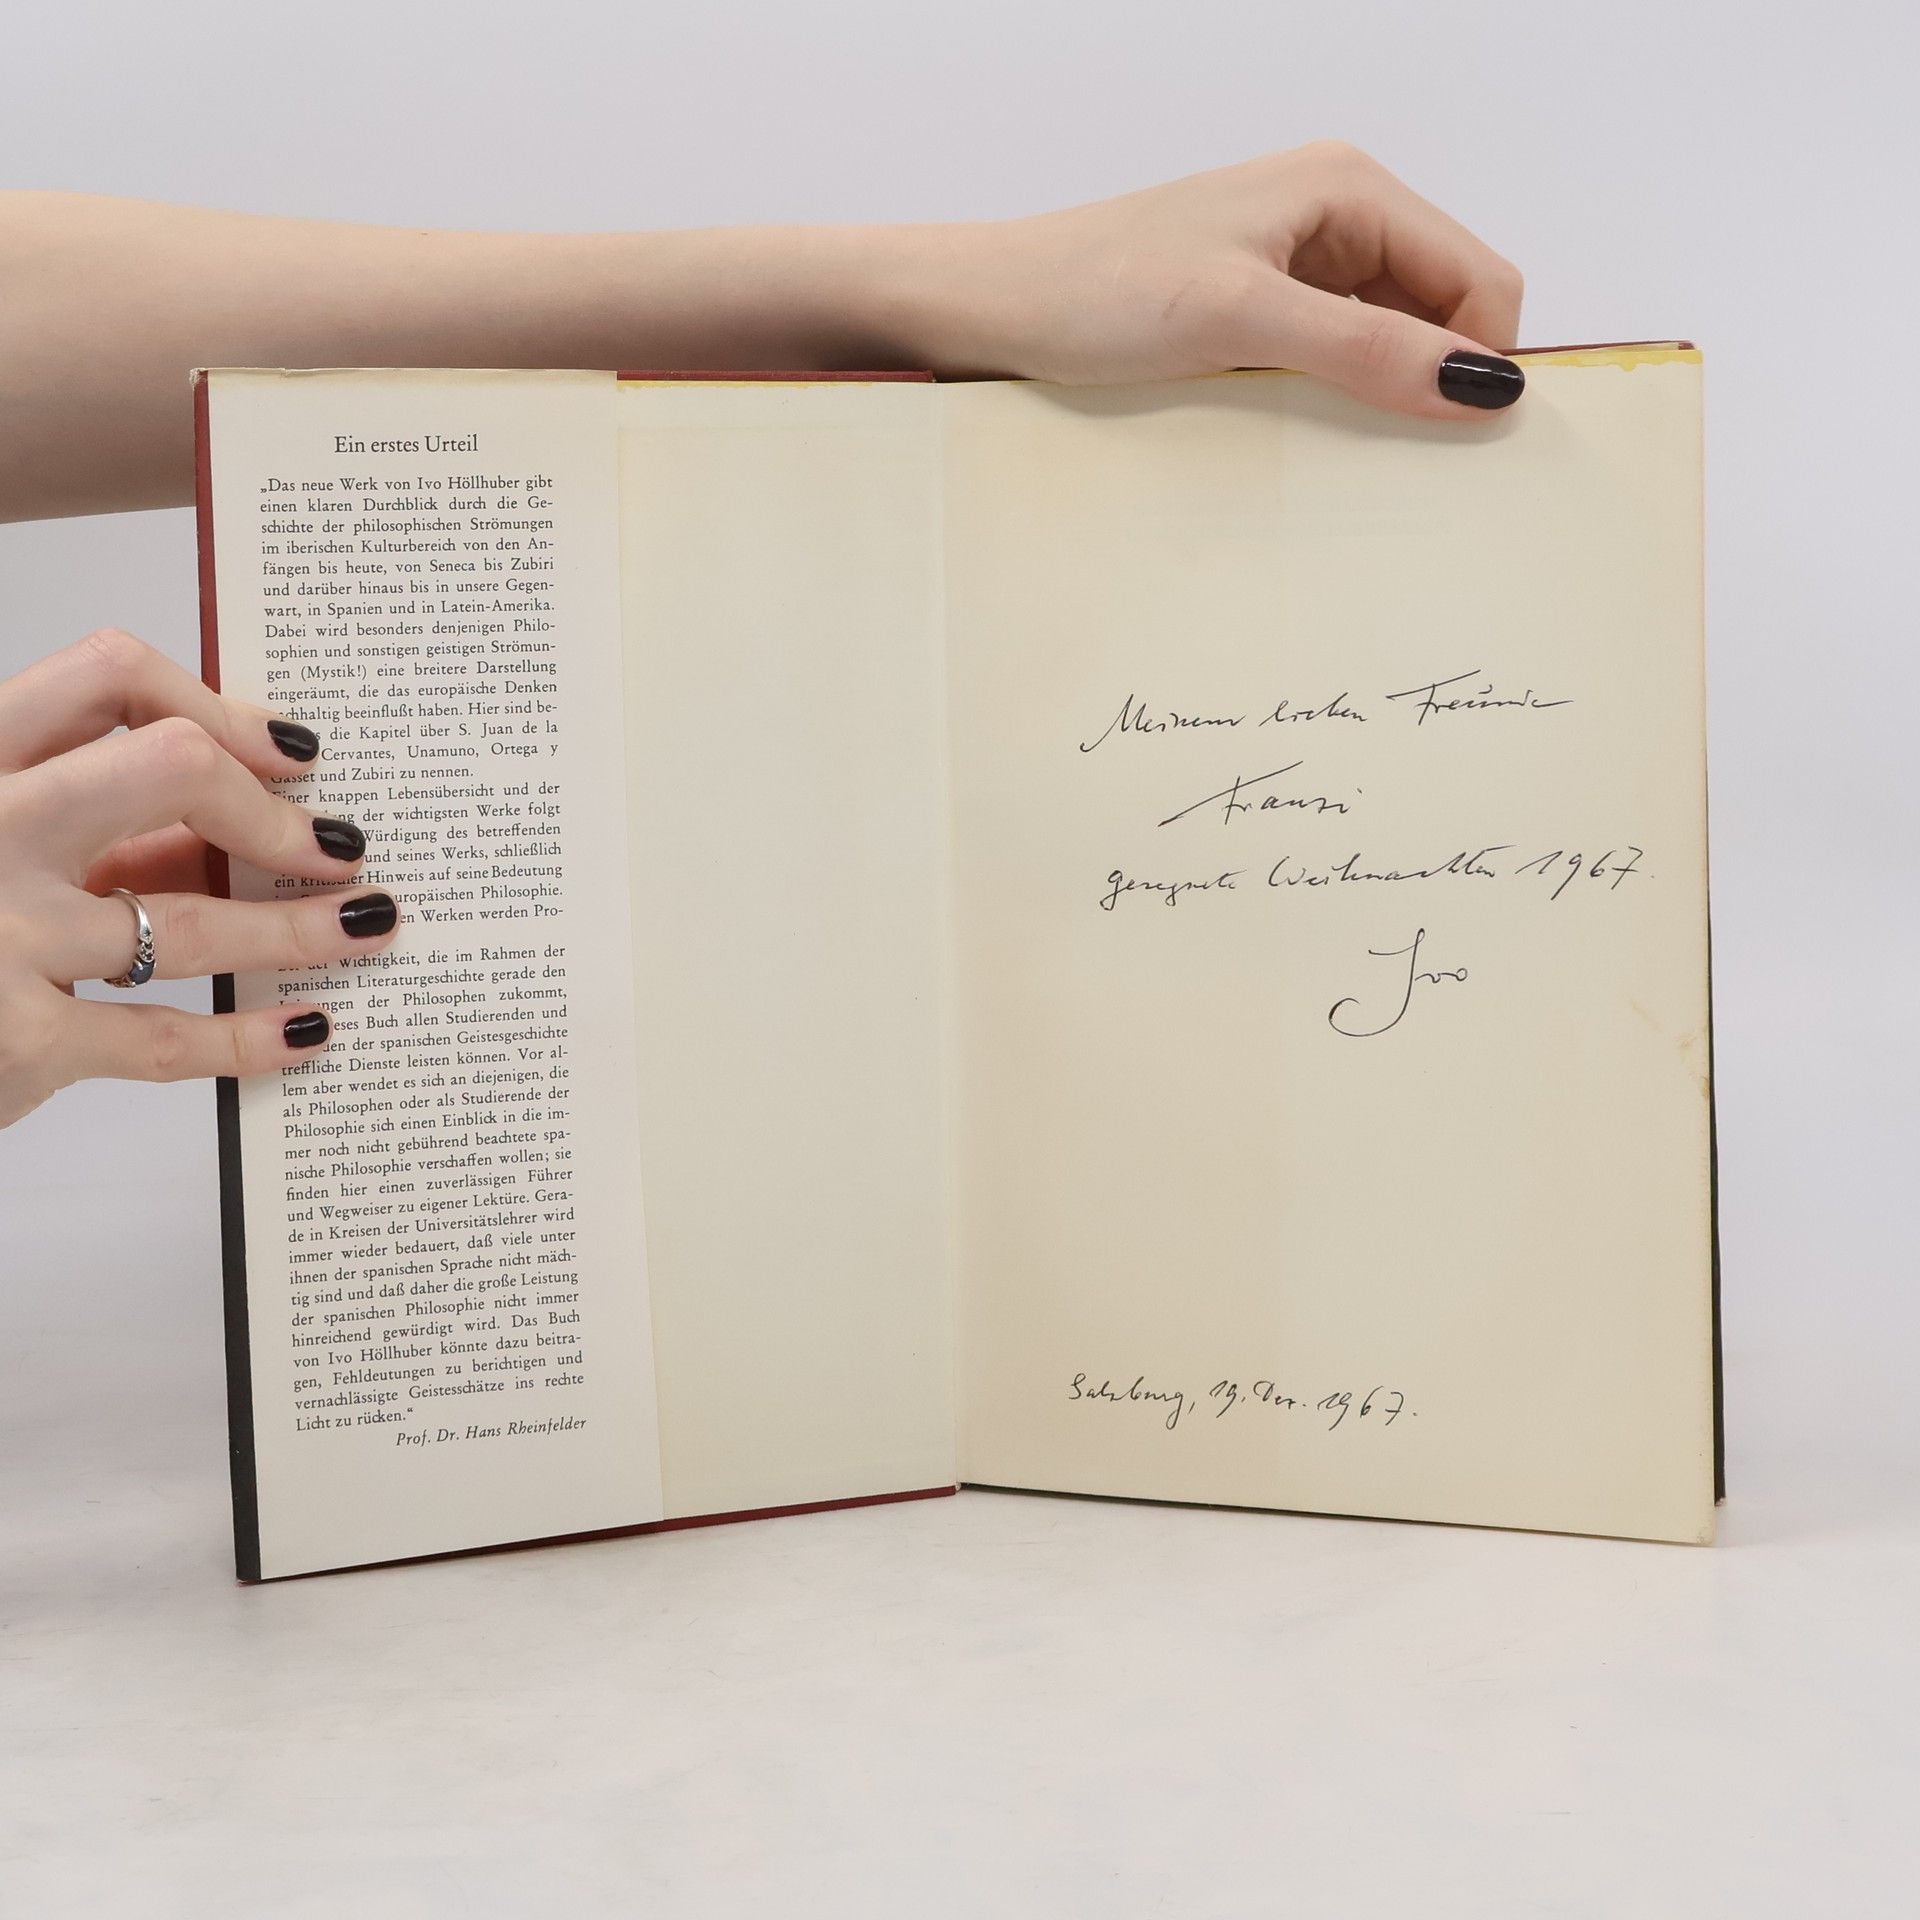 Ein erstes Urteil
„Das neue Werk von Ivo Höllhuber gibt
einen klaren Durchblick durch die Ge-
schichte der philosophischen Strömungen
im iberischen Kulturbereich von den An-
fängen bis heute, von Seneca bis Zubiri
und darüber hinaus bis in unsere Gegen-
wart, in Spanien und in Latein-Amerika.
Dabei wird besonders denjenigen Philo-
sophien und sonstigen geistigen Strömun-
gen (Mystik!) eine breitere Darstellung
eingeräumt, die das europäische Denken
chhaltig beeinflußt haben. Hier sind be-
s die Kapitel über S. Juan de la
Cervantes, Unamuno, Ortega y
Gasset und Zubiri zu nennen.
Einer knappen Lebensübersicht und der
ng der wichtigsten Werke folgt
Würdigung des betreffenden
und seines Werks, schließlich
ein kritischer Hinweis auf seine Bedeutung
uropäischen Philosophie.
en Werken werden Pro-
Bei der Wichtigkeit, die im Rahmen der
spanischen Literaturgeschichte gerade den
ngen der Philosophen zukommt,
eses Buch allen Studierenden und
den der spanischen Geistesgeschichte
treffliche Dienste leisten können. Vor al-
lem aber wendet es sich an diejenigen, die
als Philosophen oder als Studierende der
Philosophie sich einen Einblick in die im-
mer noch nicht gebührend beachtete spa-
nische Philosophie verschaffen wollen; sie
finden hier einen zuverlässigen Führer
und Wegweiser zu eigener Lektüre. Gera-
de in Kreisen der Universitätslehrer wird
immer wieder bedauert, daß viele unter
ihnen der spanischen Sprache nicht mäch-
tig sind und daß daher die große Leistung
der spanischen Philosophie nicht immer
hinreichend gewürdigt wird. Das Buch
von Ivo Höllhuber könnte dazu beitra-
gen, Fehldeutungen zu berichtigen und
vernachlässigte Geistesschätze ins rechte
Licht zu rücken.“
Prof. Dr. Hans Rheinfelder
Meinem lieben Freunde
Franzi
gesegnete Weihnachten 1967.
Ivo
Salzburg, 19. Dez. 1967.